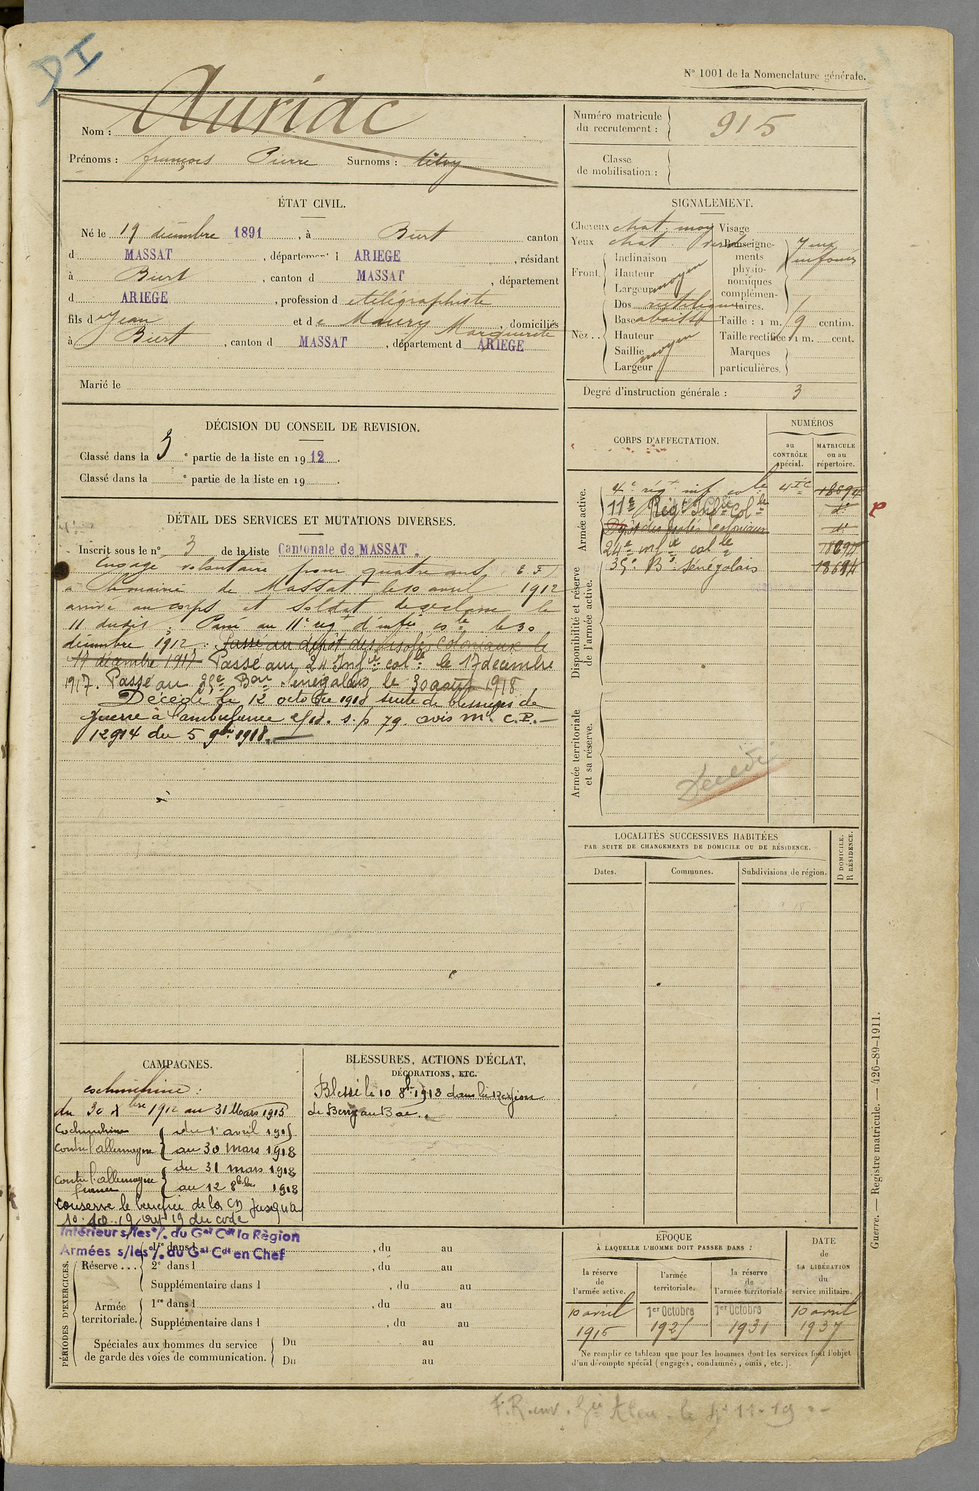 DI
N° 1001 de la Nomenclature générale.
Nom : Auriac
Prénoms : françois Pierre Surnoms :
Numéro matricule du recrutement : 915
Classe de mobilisation :
ÉTAT CIVIL.
Né le 19 décembre 1891, à Biert canton
d MASSAT, département d ARIEGE, résidant
à Biert, canton d MASSAT, département
d ARIEGE, profession d télégraphiste
fils d e Jean et d e Maury Marguerite, domiciliés
à Biert, canton d MASSAT, département d ARIEGE
Marié le
SIGNALEMENT.
Cheveux chat moy Visage
Yeux chat Renseignements physionomiques complémentaires. Yeux enfoncés
Front. Inclinaison
Hauteur moyen
Largeur
Nez.. Dos rectiligne
Base abaissé Taille : 1 m. 19 centim.
Hauteur moyen Taille rectifiée : 1 m. cent.
Saillie Marques
Largeur particulières.
Degré d'instruction générale : 3
DÉCISION DU CONSEIL DE REVISION.
Classé dans la 3e partie de la liste en 1912.
Classé dans la e partie de la liste en 19 .
CORPS D'AFFECTATION.
NUMÉROS
au CONTRÔLE spécial.
MATRICULE ou au répertoire.
Armée active.
4e régt inf colle 4 Ie C 18694
11e Régt Infie Colle do
Dépôt des Isolés coloniaux do
24e infie colle 18694
35e Bon Sénégalais 18694
Disponibilité et réserve de l'armée active.
Armée territoriale et sa réserve.
Décédé
DÉTAIL DES SERVICES ET MUTATIONS DIVERSES.
Inscrit sous le n° 3 de la liste Cantonale de MASSAT.
Engagé volontaire pour quatre ans
à la mairie de Massat le 10 avril 1912
arrivé au corps et soldat de 2e classe le
11 dudit ; Passé au 11e régt d'infie colle le 30
décembre 1912. Passé au dépôt des Isolés Coloniaux le
17 décembre 1917 Passé au 24 Infie colle le 17 décembre
1917. Passé au 35e Bon Sénégalais le 30 août 1918
Décédé le 12 octobre 1918 suite de blessures de
guerre à l'ambulance 2/18. s.p. 79 avis ml C.P.
12914 du 5 9bre 1918.
LOCALITÉS SUCCESSIVES HABITÉES
PAR SUITE DE CHANGEMENTS DE DOMICILE OU DE RÉSIDENCE.
Dates.
Communes.
Subdivisions de région.
D DOMICILE. R RÉSIDENCE.
CAMPAGNES.
cochinchine :
du 30 Xbre 1912 au 31 Mars 1915
Cochinchine du 1er avril 1915
contre l'allemagne au 30 mars 1918
contre l'allemagne du 31 mars 1918
france au 12 8bre 1918
conserve le bénéfice de la CD jusqu'a
Intérieur s/les °/. du Gal Cdt la Région
Armées s/les °/. du Gal Cdt en Chef
BLESSURES, ACTIONS D'ÉCLAT,
DÉCORATIONS, ETC.
Blessé le 10 8bre 1918 dans la Région
de Berry au Bac..
PÉRIODES D'EXERCICES.
Réserve... 1re dans l , du au
2e dans l , du au
Supplémentaire dans l , du au
Armée territoriale. 1re dans l , du au
Supplémentaire dans l , du au
Spéciales aux hommes du service de garde des voies de communication. Du au
Du au
ÉPOQUE
À LAQUELLE L'HOMME DOIT PASSER DANS :
la réserve de l'armée active.
l'armée territoriale.
la réserve de l'armée territoriale
DATE de LA LIBÉRATION du service militaire.
10 avril 1915
1er Octobre 1925
1er Octobre 1931
10 avril 1937
Ne remplir ce tableau que pour les hommes dont les services font l'objet
d'un décompte spécial (engagés, condamnés, omis, etc.).
Guerre. — Registre matricule. — 426-89-1911.